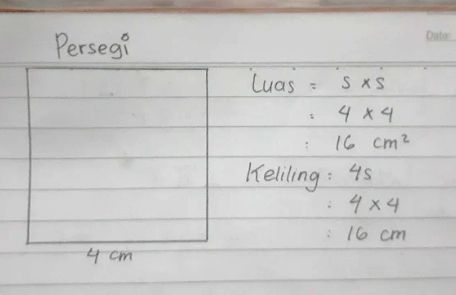 Date:
Persegi
Luas = s x s
: 4 x 4
: 16 cm²
Keliling : 4s
: 4 x 4
: 16 cm
4 cm